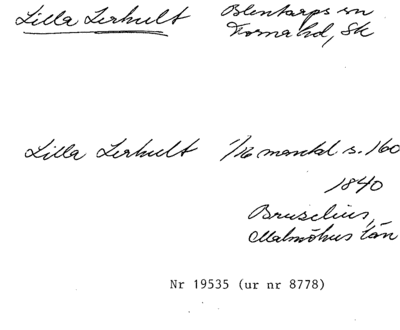 Lilla Lerhult Blentarps sn
Torna hd, Sk
Lilla Lerhult 1/16 mankl s. 160
1840
Bruselius,
Malmöhus län
Nr 19535 (ur nr 8778)